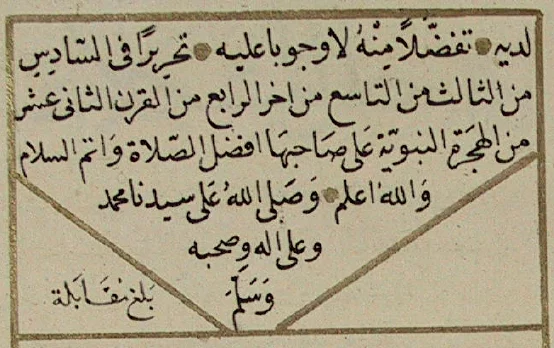 لديه تفضّلاً مِنْهُ لا وجوبا عليه تحريرًا فى السّادِسِ
من الثالث من التاسع من اخر الرابع من القرن الثانى عشر
من الهجرَة النبويّة عَلى صَاحبهَا افضل الصّلاة وَاتم السلام
وَاللهُ اعلم وَصَلى اللهُ عَلى سيدنا محمد
وعلى اله وصحبه
وَسَلّمَ
بَلغ مقَابَلة